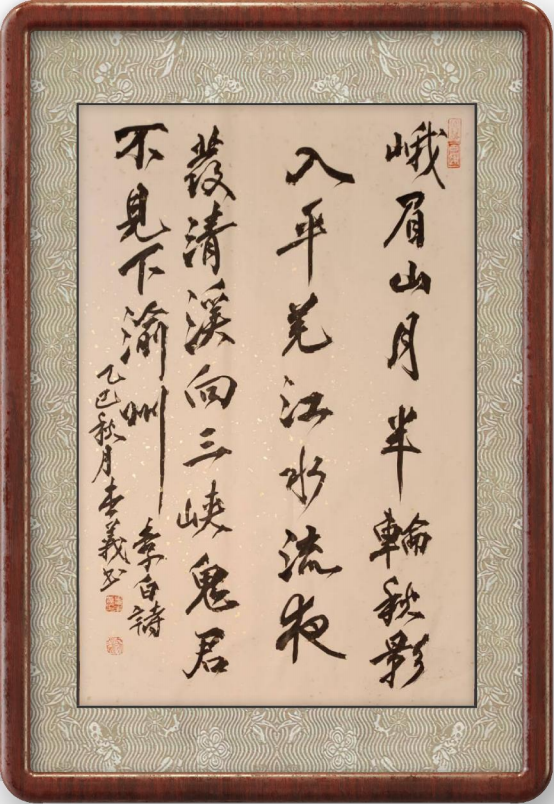 峨眉山月半輪秋影
入平羌江水流夜
發清溪向三峽鬼君
不見下渝州
李白詩
乙巳秋月義书